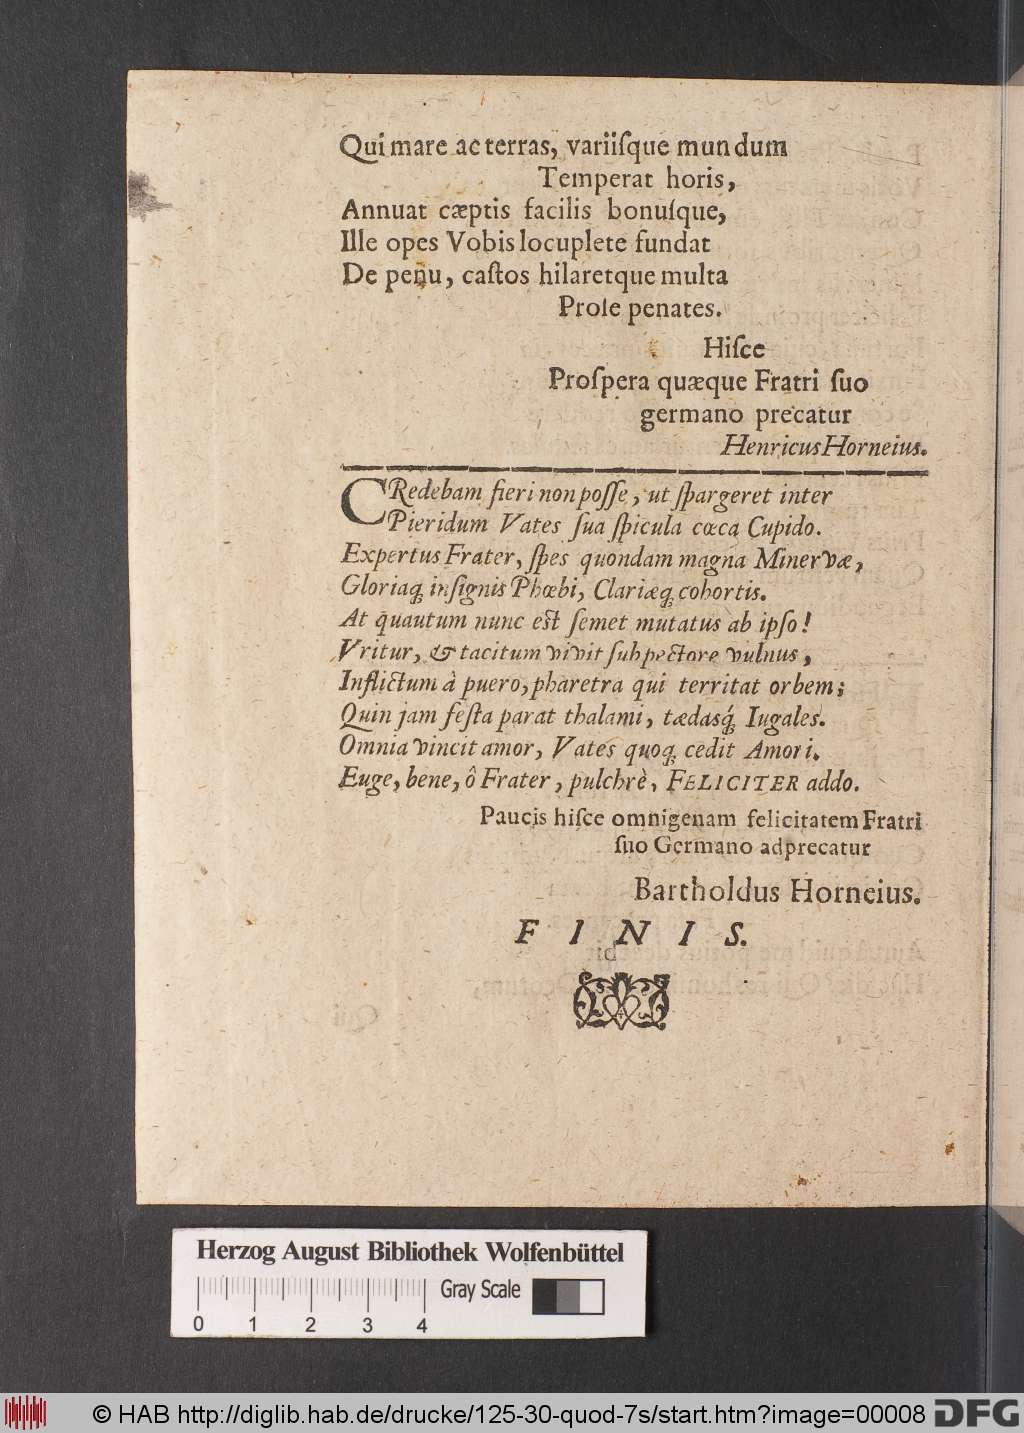 Qui mare ac terras, variiſque mundum
Temperat horis,
Annuat cæptis facilis bonuſque,
Ille opes Vobis locuplete fundat
De penu, caſtos hilaretque multa
Prole penates.
Hiſce
Proſpera quæque Fratri ſuo
germano precatur
Henricus Horneius.
CRedebam fieri non poſſe, ut ſpargeret inter
Pieridum Vates ſua ſpicula cœca Cupido.
Expertus Frater, ſpes quondam magna Minervæ,
Gloriaq́; inſignis Phœbi, Clariæq́; cohortis.
At quautum nunc eſt ſemet mutatus ab ipſo!
Vritur, & tacitum vivit ſub pectore vulnus,
Inflictum à puero, pharetra qui territat orbem;
Quin jam feſta parat thalami, tædasq́; Iugales.
Omnia vincit amor, Vates quoq; cedit Amori.
Euge, bene, ô Frater, pulchrè, FELICITER addo.
Paucis hiſce omnigenam felicitatem Fratri
ſuo Germano adprecatur
Bartholdus Horneius.
F I N I S.
Herzog August Bibliothek Wolfenbüttel
0 1 2 3 4 Gray Scale
© HAB http://diglib.hab.de/drucke/125-30-quod-7s/start.htm?image=00008 DFG